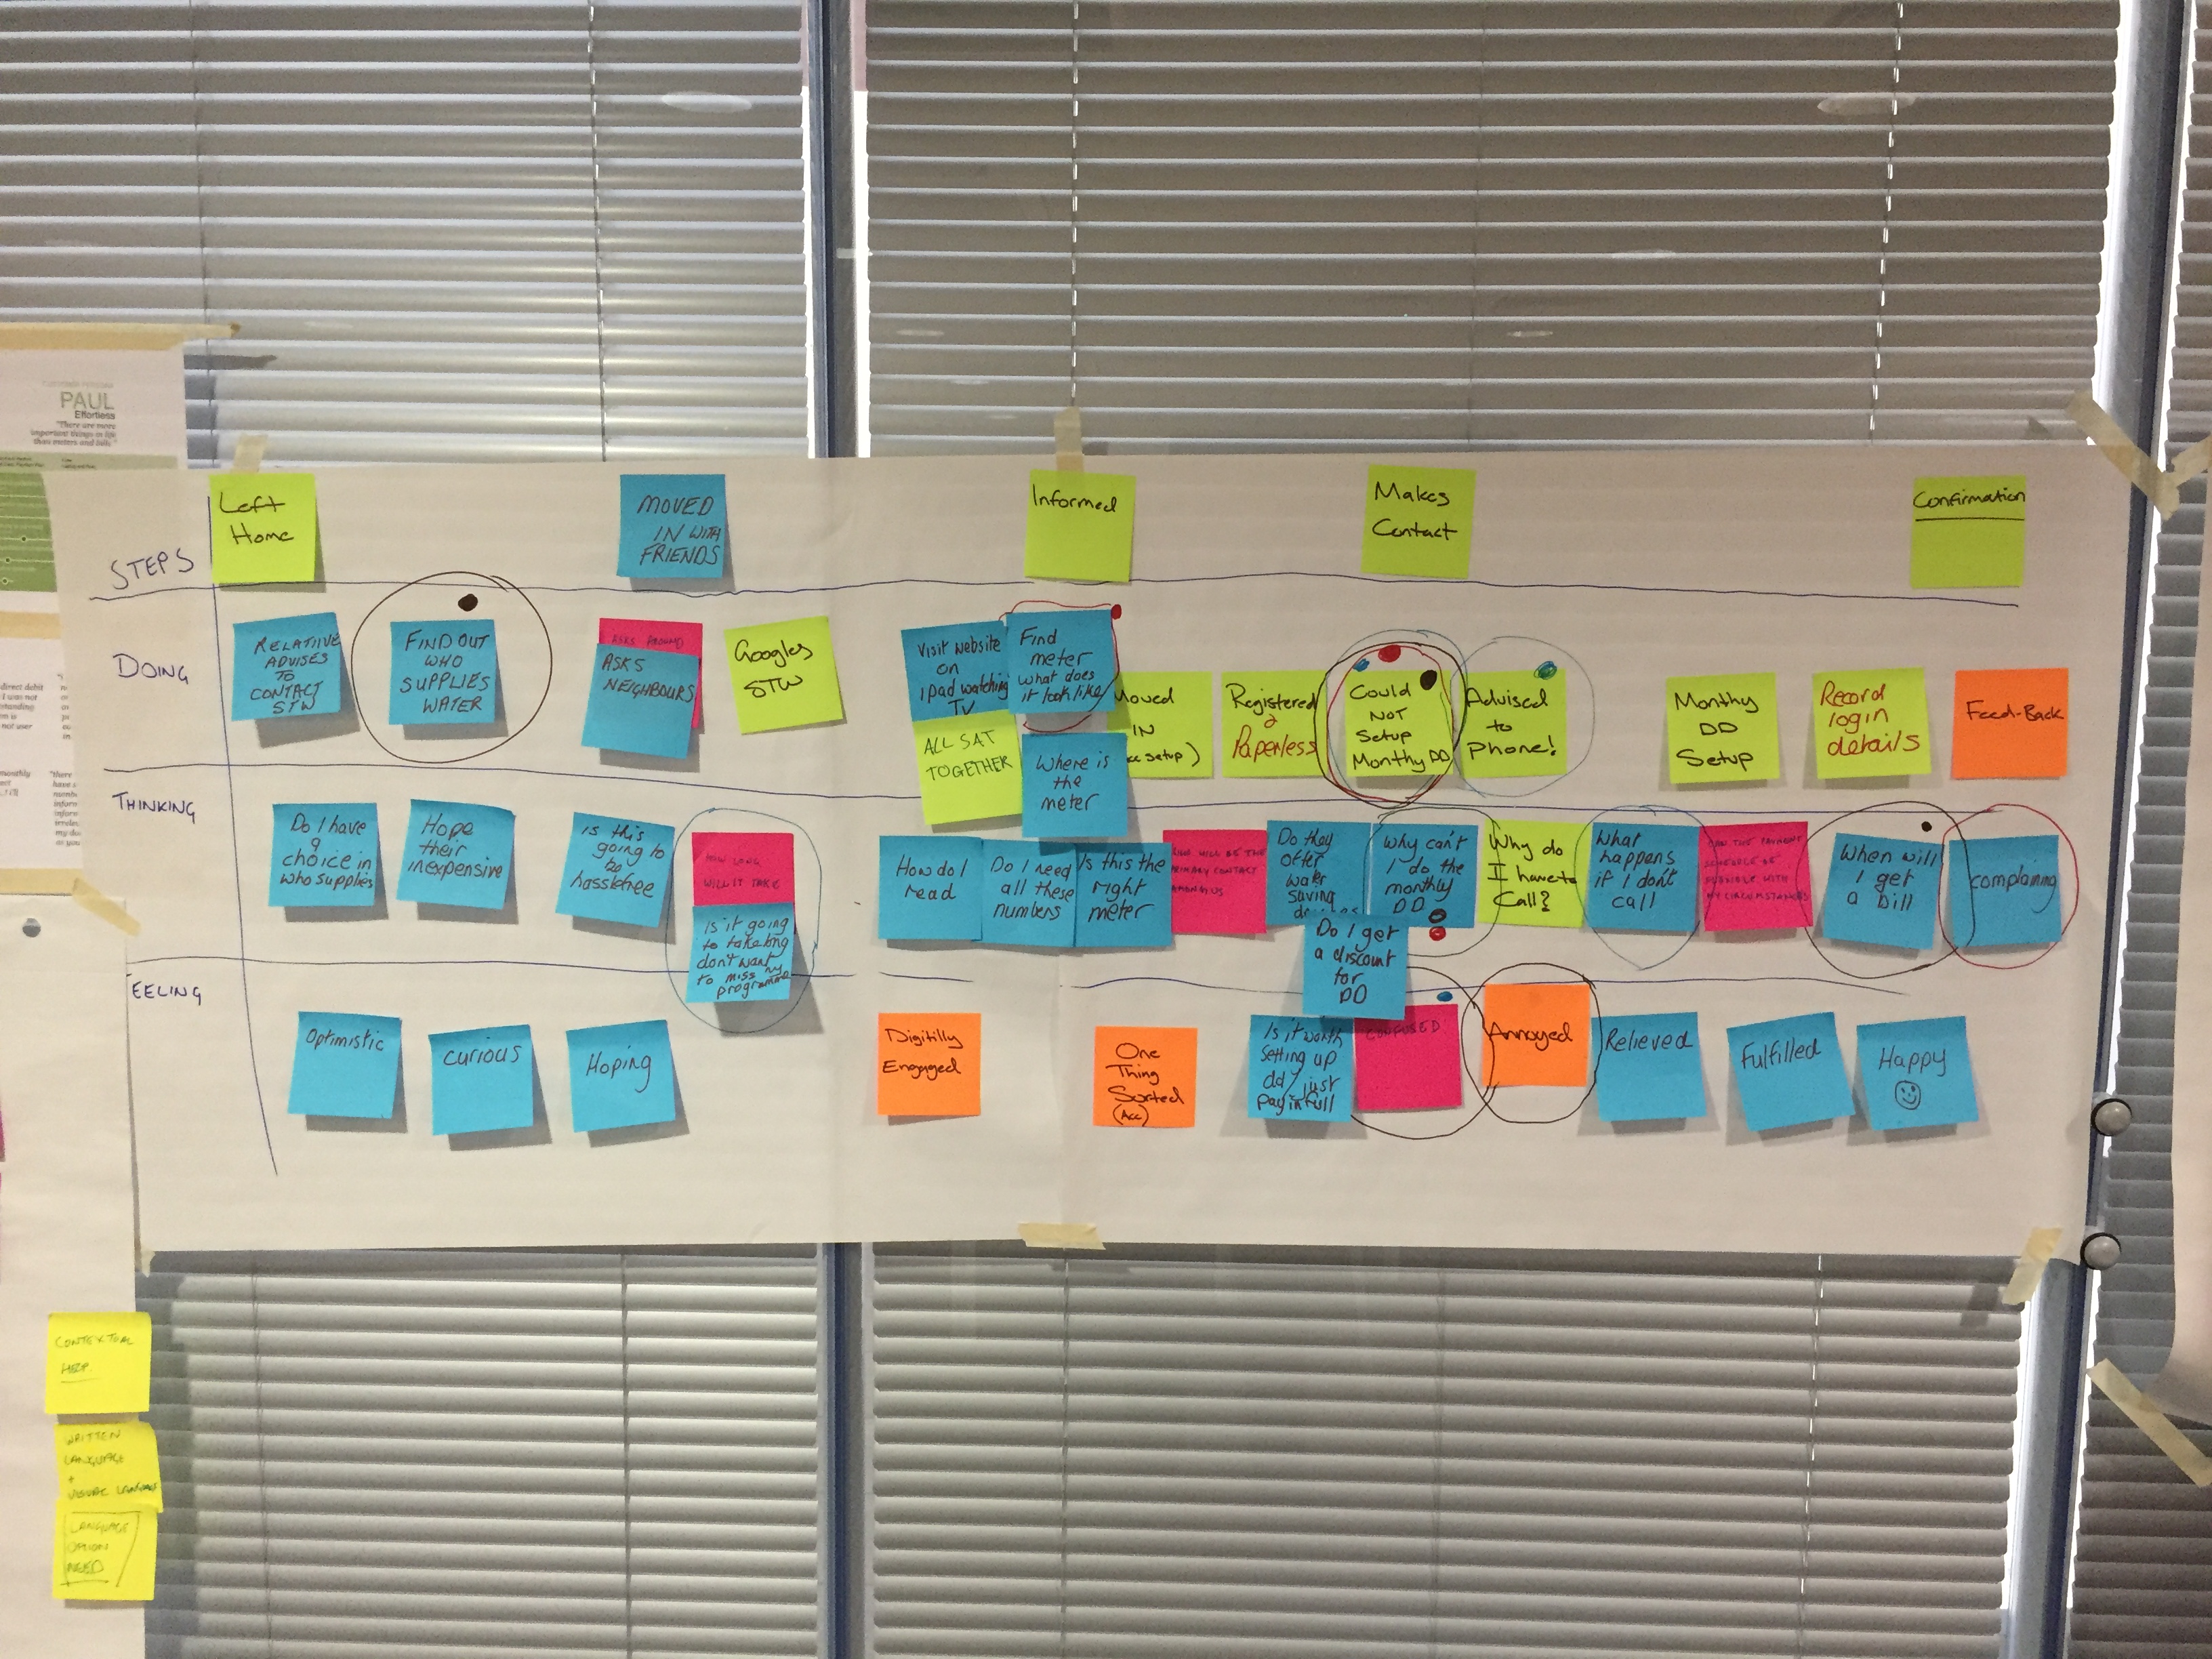 PAUL
Effortless
"There are more
important things in life
than meters and bills."
direct debit
I was not
not user
monthly
STEPS
Left
Home
MOVED
IN WITH
FRIENDS
Informed
Makes
Contact
Confirmation
DOING
RELATIVE
ADVISES
TO
CONTACT
STW
FIND OUT
WHO
SUPPLIES
WATER
ASKS AROUND
ASKS
NEIGHBOURS
Googles
STW
Visit website
on
ipad watching
TV
ALL SAT
TOGETHER
Find
meter
what does
it look like
Where is
the
meter
Moved
IN
setup)
Registered
&
Paperless
Could
NOT
Setup
Monthly DD
Advised
to
phone!
Monthy
DD
Setup
Record
login
details
Feed-Back
THINKING
Do I have
a
choice in
who supplies
Hope
their
inexpensive
is this
going to
be
hasslefree
HOW LONG
WILL IT TAKE
Is it going
to take long
don't want
to miss my
programme
How do I
read
Do I need
all these
numbers
Is this the
right
meter
WHO WILL BE THE
PRIMARY CONTACT
AMONG US
Do they
offer
water
saving
Why can't
I do the
monthly
DD
Do I get
a discount
for
DD
Why do
I have to
Call?
What
happens
if I don't
call
CAN THE PAYMENT
SCHEDULE BE
FLEXIBLE WITH
MY CIRCUMSTANCES
When will
I get
a bill
complaining
EELING
Optimistic
curious
Hoping
Digitilly
Engaged
One
Thing
Sorted
(Acc)
Is it worth
setting up
dd/just
pay in full
CONFUSED
Annoyed
Relieved
Fulfilled
Happy
CONTEXTUAL
HELP
WRITTEN
LANGUAGE
+
VISUAL LANGUAGE
LANGUAGE
OPTION
NEED